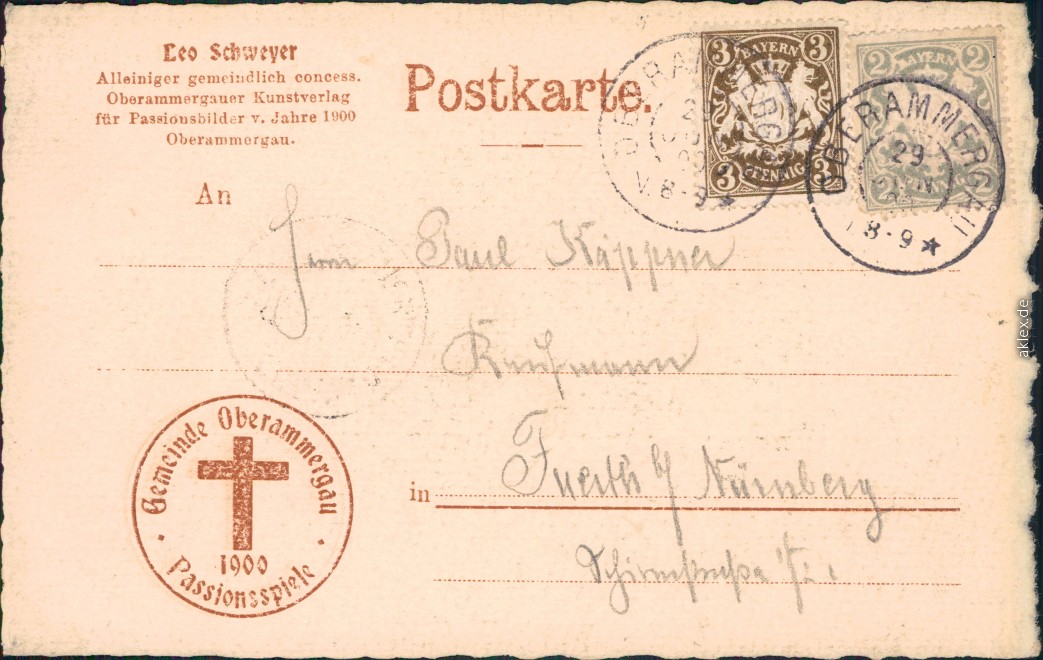 Leo Schweyer
Alleiniger gemeindlich concess.
Oberammergauer Kunstverlag
für Passionsbilder v. Jahre 1900
Oberammergau.
Postkarte.
3 BAYERN 3
3 PFENNIG 3
2 BAYERN 2
OBERAMMERGAU
V. 8-9 ★
OBERAMMERGAU
29
8-9 ★
An
Herrn Paul Käppner
Kaufmann
in Fuerth b/ Nürnberg
Gemeinde Oberammergau
1900
Passionsspiele
aklex.de